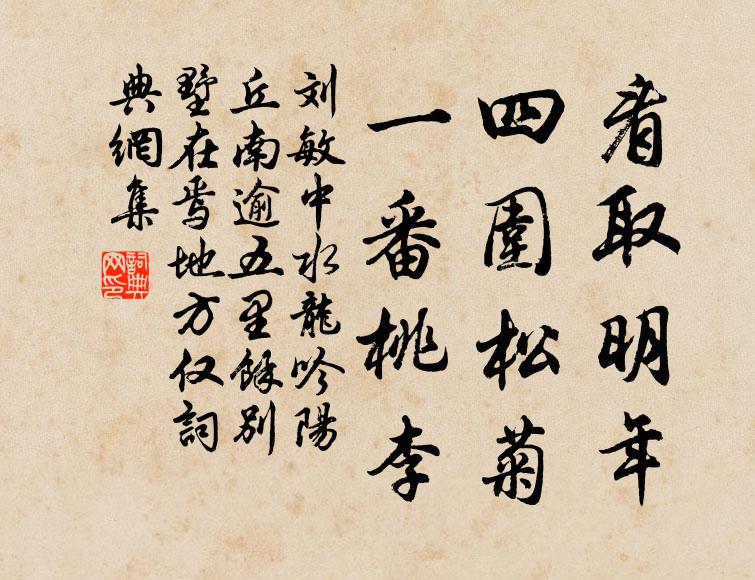 看取明年
四圍松菊
一番桃李
刘敏中水龍吟陽
丘南逾五里餘別
墅在焉地方仅詞
典網集
詞典
网印